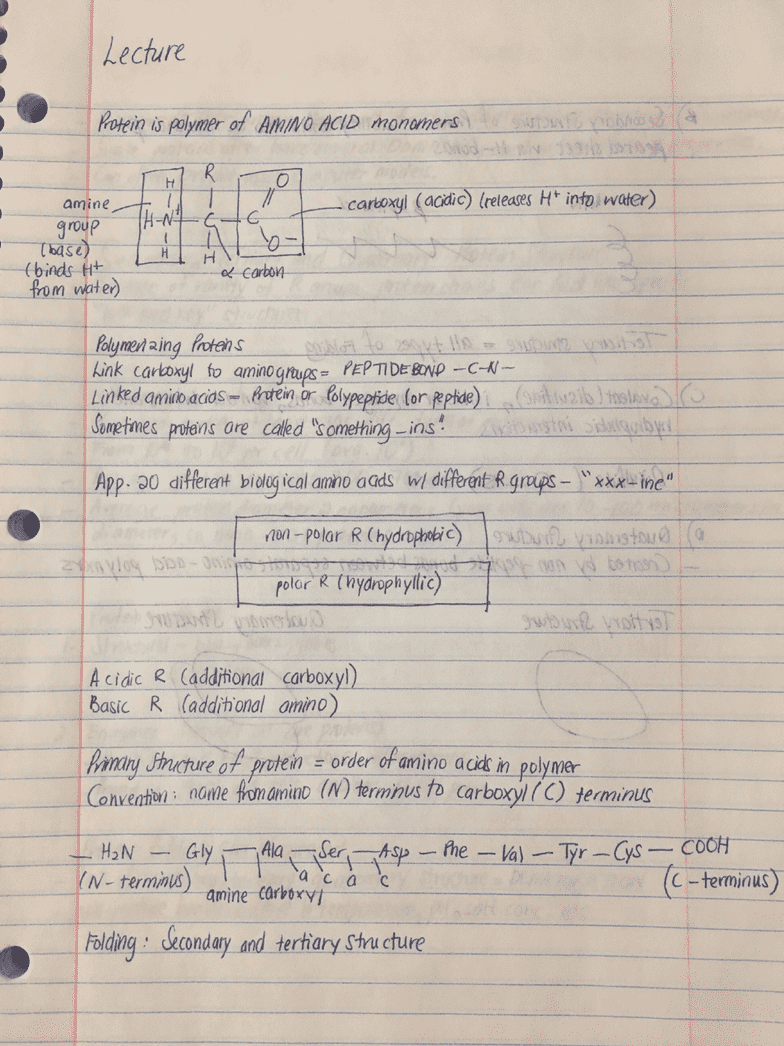 Lecture
Protein is polymer of AMINO ACID monomers
H R O
amine H-N+ - C - C carboxyl (acidic) (releases H+ into water)
group
(base) H H O-
(binds H+ α carbon
from water)
Polymerizing Proteins
Link carboxyl to amino groups = PEPTIDE BOND -C-N-
Linked amino acids = Protein or Polypeptide (or peptide)
Sometimes proteins are called "something-ins".
App. 20 different biological amino acids w/ different R groups - "xxx-ine"
non-polar R (hydrophobic)
polar R (hydrophyllic)
Acidic R (additional carboxyl)
Basic R (additional amino)
Primary Structure of protein = order of amino acids in polymer
Convention: name from amino (N) terminus to carboxyl (C) terminus
- H2N - Gly - Ala - Ser - Asp - Phe - Val - Tyr - Cys - COOH
(N-terminus) amine carboxyl a c a c (C-terminus)
Folding: Secondary and tertiary structure